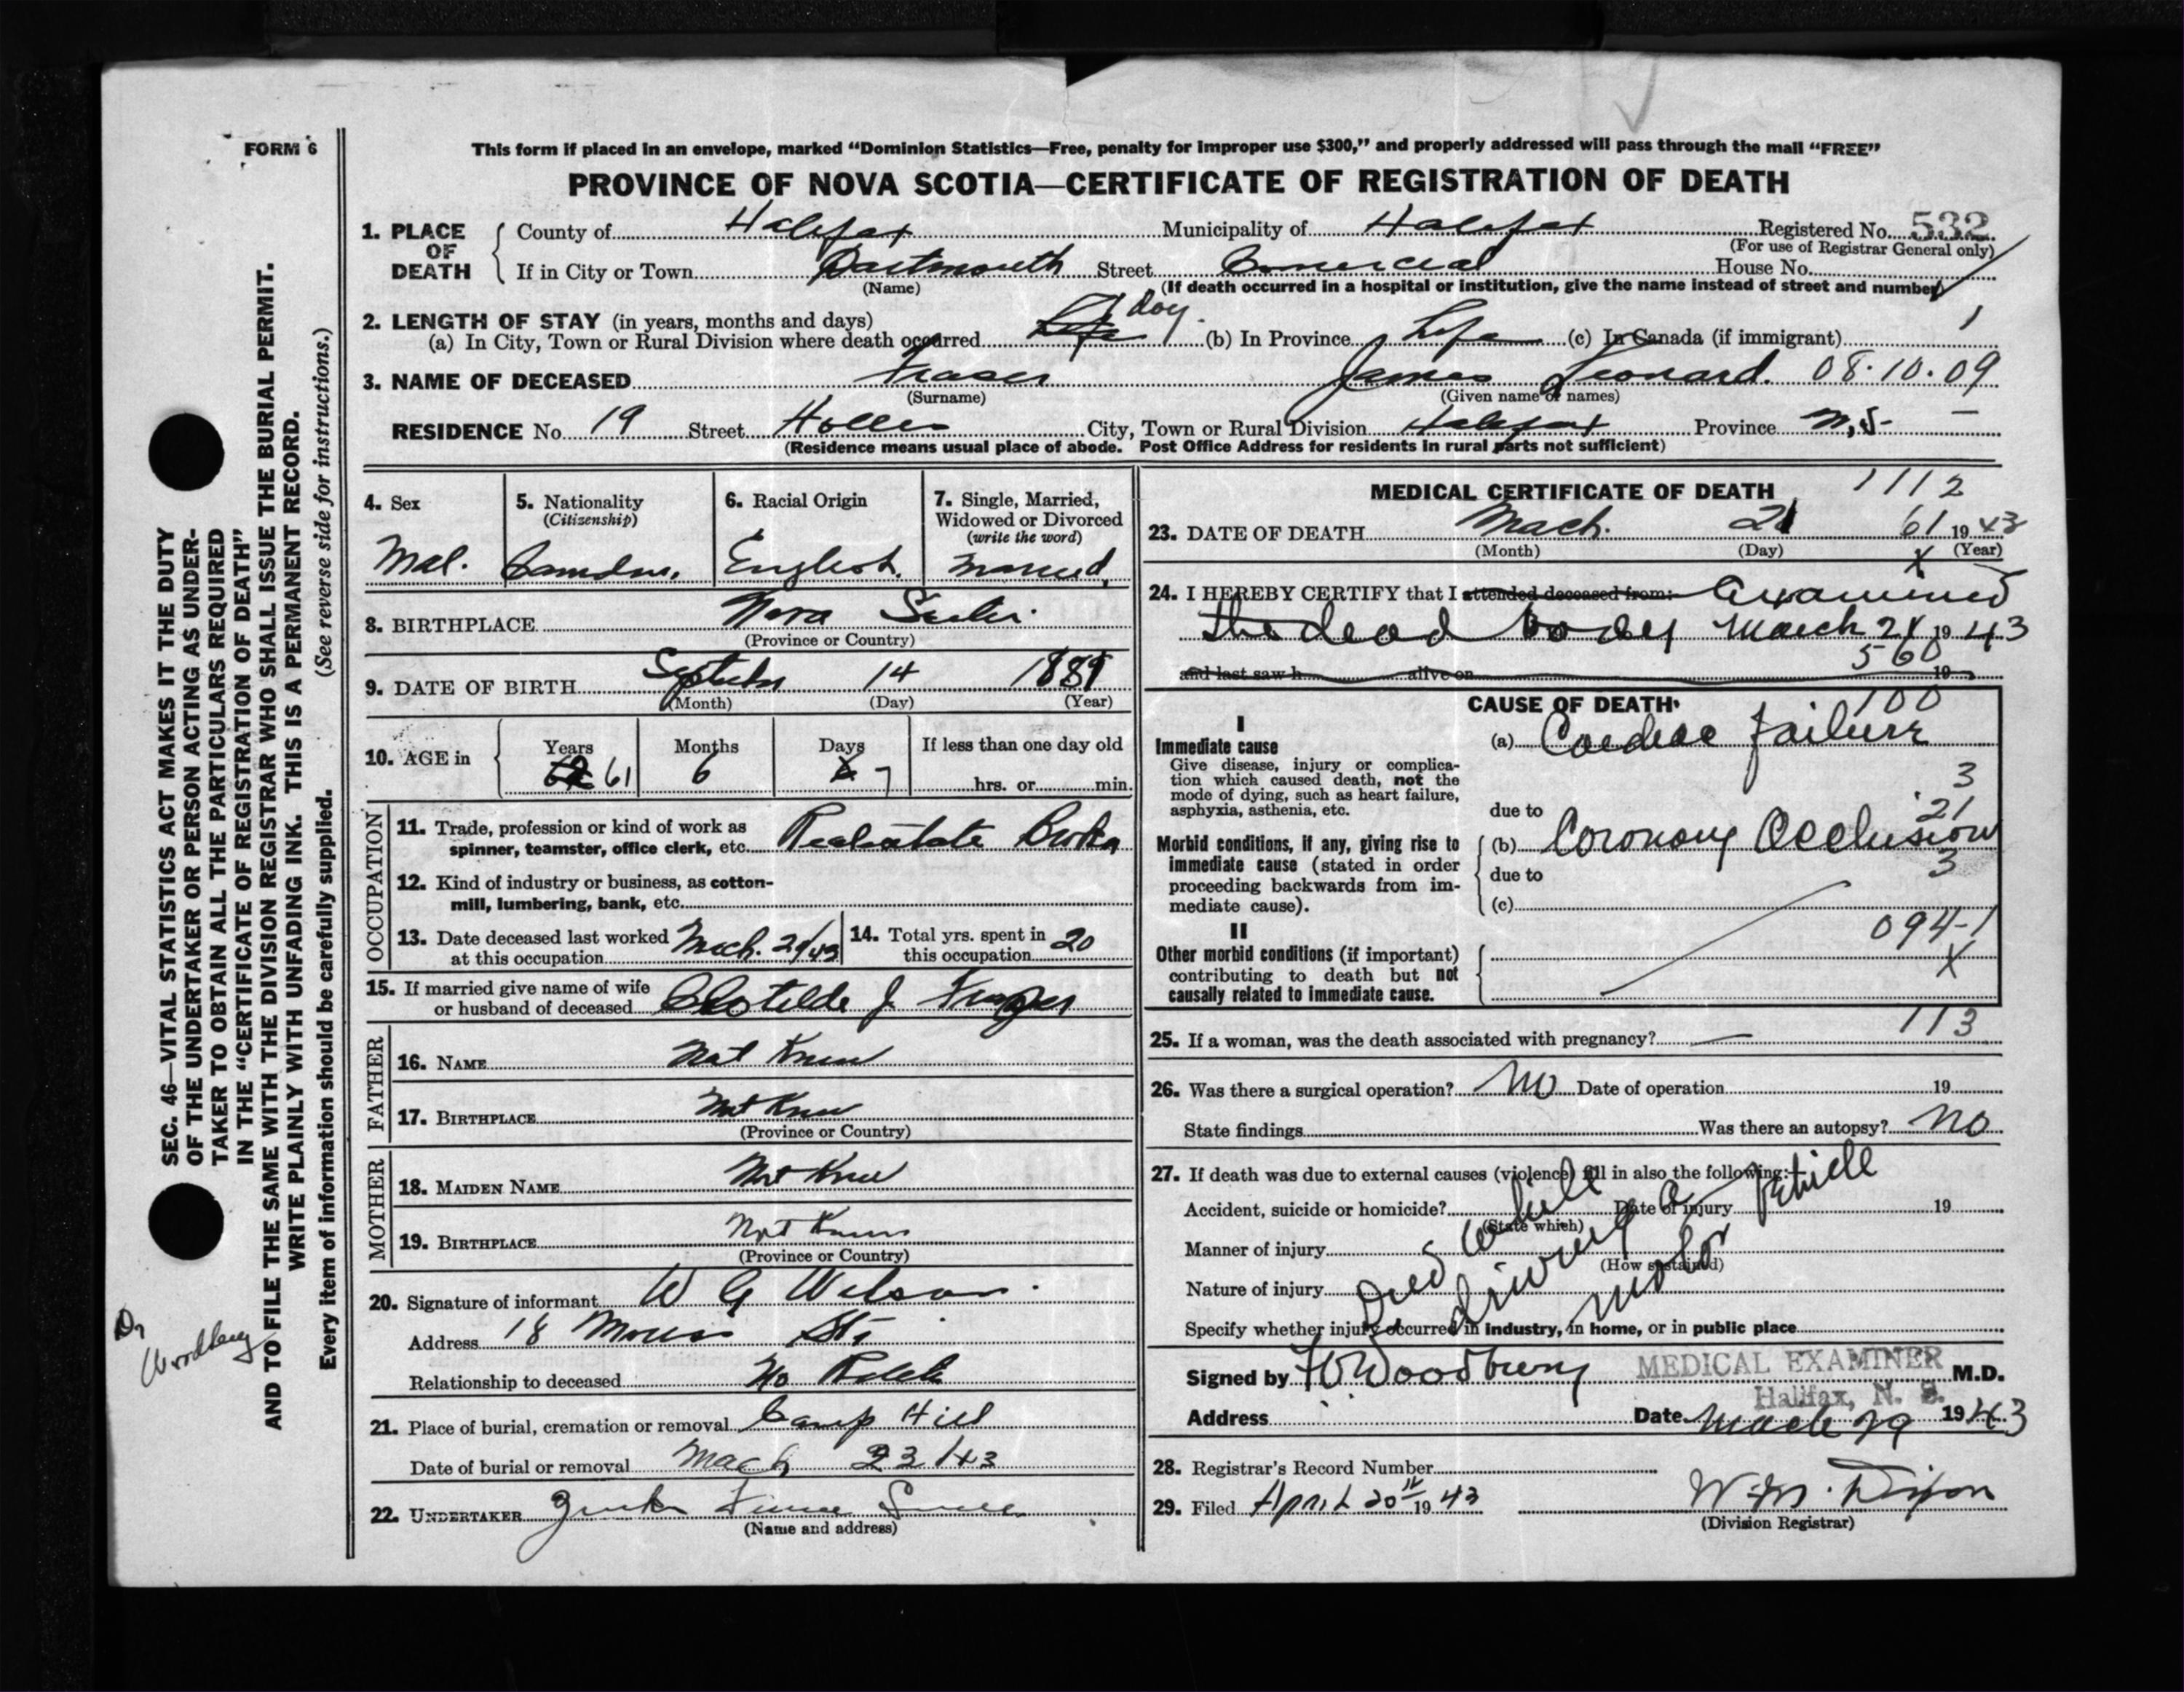 FORM 6
This form if placed in an envelope, marked “Dominion Statistics—Free, penalty for improper use $300,” and properly addressed will pass through the mail “FREE”
PROVINCE OF NOVA SCOTIA—CERTIFICATE OF REGISTRATION OF DEATH
1. PLACE OF DEATH County of Halifax Municipality of Halifax Registered No. 532
(For use of Registrar General only)
If in City or Town Dartmouth Street Comercial House No.
(Name) (If death occurred in a hospital or institution, give the name instead of street and number)
2. LENGTH OF STAY (in years, months and days)
(a) In City, Town or Rural Division where death occurred Life 1 day. (b) In Province Life (c) In Canada (if immigrant)
3. NAME OF DECEASED Fraser James Leonard. 08·10·09
(Surname) (Given name or names)
RESIDENCE No. 19 Street Hollis City, Town or Rural Division Halifax Province N.S-
(Residence means usual place of abode. Post Office Address for residents in rural parts not sufficient)
4. Sex 5. Nationality 6. Racial Origin 7. Single, Married,
(Citizenship) Widowed or Divorced
(write the word)
Mal. English. Married
8. BIRTHPLACE Nova
(Province or Country)
9. DATE OF BIRTH 14
(Month) (Day) (Year)
10. AGE in Years Months Days If less than one day old
61 6 7 hrs. or min.
OCCUPATION
11. Trade, profession or kind of work as
spinner, teamster, office clerk, etc. Realestate Broker
12. Kind of industry or business, as cotton-
mill, lumbering, bank, etc.
13. Date deceased last worked
at this occupation Mach. 21/43
14. Total yrs. spent in
this occupation 20
15. If married give name of wife
or husband of deceased Clotilde J Fraser
FATHER
16. NAME Not Know
17. BIRTHPLACE Not Know
(Province or Country)
MOTHER
18. MAIDEN NAME Not Know
19. BIRTHPLACE Not Know
(Province or Country)
20. Signature of informant W G Wilson
Address 18 Morris St.
Relationship to deceased No
21. Place of burial, cremation or removal Camp Hill
Date of burial or removal Mach 23/43
22. UNDERTAKER
(Name and address)
MEDICAL CERTIFICATE OF DEATH 1112
23. DATE OF DEATH Mach. 21 61 1943
(Month) (Day) (Year)
X
24. I HEREBY CERTIFY that I attended deceased from: Examined
the dead body March 21 1943
560
and last saw h alive on 19
CAUSE OF DEATH 100
I
Immediate cause (a) Cardiac failure
Give disease, injury or complica-
tion which caused death, not the
mode of dying, such as heart failure,
asphyxia, asthenia, etc.
3
due to 21
Morbid conditions, if any, giving rise to
immediate cause (stated in order
proceeding backwards from im-
mediate cause).
(b) Coronary Occlusion
due to 3
(c)
094-1
II
Other morbid conditions (if important)
contributing to death but not
causally related to immediate cause.
X
113
25. If a woman, was the death associated with pregnancy? —
26. Was there a surgical operation? No Date of operation 19
State findings Was there an autopsy? No
27. If death was due to external causes (violence) fill in also the following:
Accident, suicide or homicide? Date of injury 19
(State which)
Manner of injury
(How sustained)
Nature of injury
Specify whether injury occurred in industry, in home, or in public place
Died while
driving a
motor vehicle
Signed by Woodbury MEDICAL EXAMINER M.D.
Halifax, N. S.
Address Date March 29 1943
28. Registrar's Record Number
29. Filed April 20th 1943 Dixon
(Division Registrar)
SEC. 46—VITAL STATISTICS ACT MAKES IT THE DUTY
OF THE UNDERTAKER OR PERSON ACTING AS UNDER-
TAKER TO OBTAIN ALL THE PARTICULARS REQUIRED
IN THE “CERTIFICATE OF REGISTRATION OF DEATH”
AND TO FILE THE SAME WITH THE DIVISION REGISTRAR WHO SHALL ISSUE THE BURIAL PERMIT.
WRITE PLAINLY WITH UNFADING INK. THIS IS A PERMANENT RECORD.
Every item of information should be carefully supplied. (See reverse side for instructions.)
Dr
Woodbury